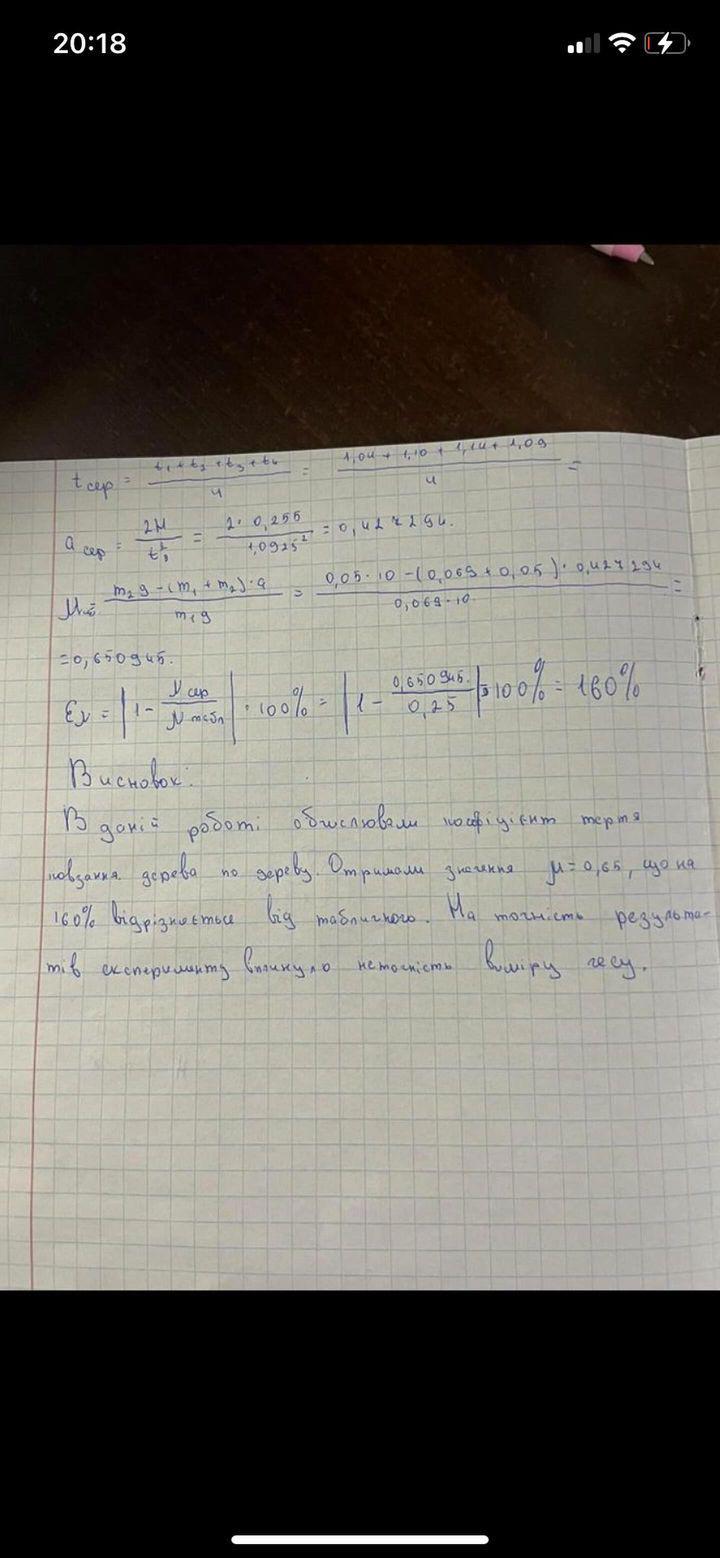 20:18
t сер = (t₁ + t₂ + t₃ + t₄)/4 = (1,04 + 1,10 + 1,14 + 1,09)/4 =
a сер = 2H/t² = 2 · 0,255/1,0925² = 0,427294.
μ = (m₂g - (m₁ + m₂) · a)/(m₁g) = (0,05 · 10 - (0,069 + 0,05) · 0,427294)/(0,069 · 10) =
= 0,650945.
εμ = |1 - μ сер/μ табл| · 100% = |1 - 0,650945./0,25| · 100% = 160%
Висновок:
В даній роботі обчислювали коефіцієнт тертя
ковзання дерева по дереву. Отримали значення μ = 0,65, що на
160% відрізняється від табличного. На точність результа-
тів експерименту вплинуло неточність виміру часу.